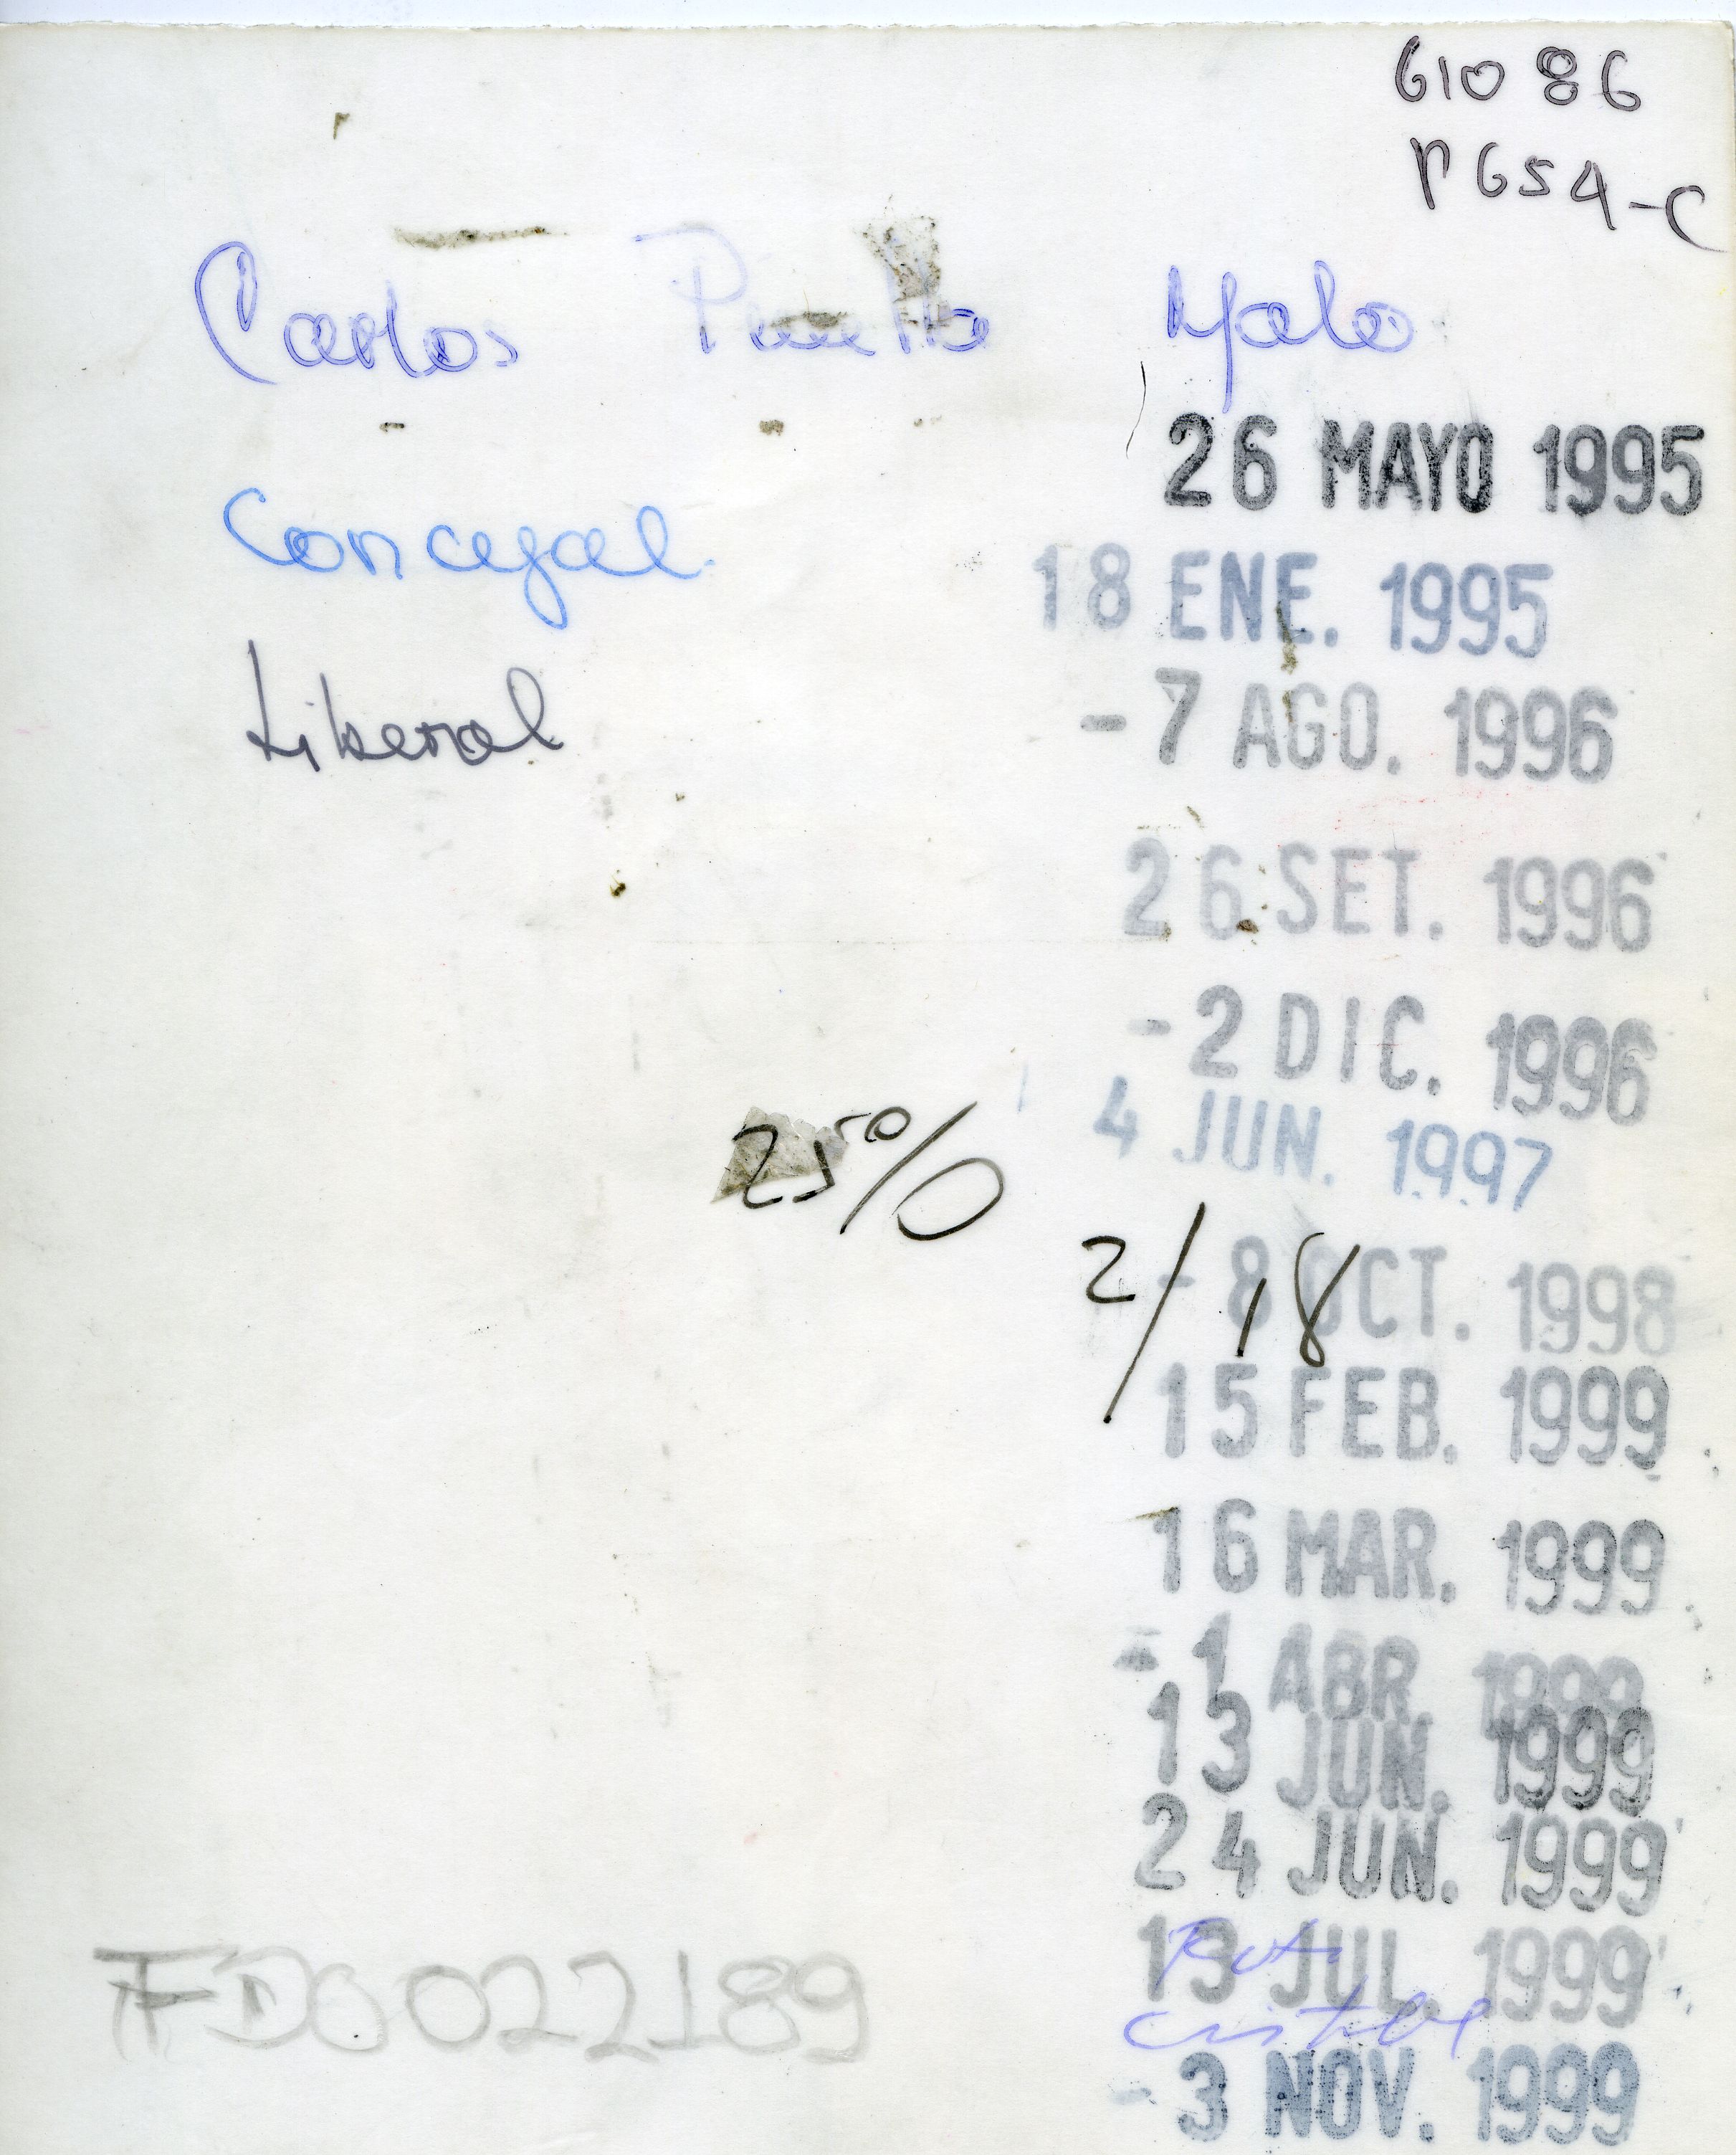 61086
P654-C
Carlos Pinella Malo
26 MAYO 1995
Concejal
18 ENE. 1995
Liberal
- 7 AGO. 1996
26 SET. 1996
- 2 DIC. 1996
4 JUN. 1997
25%
2/18
- 8 OCT. 1998
15 FEB. 1999
16 MAR. 1999
- 1 ABR 1999
13 JUN. 1999
24 JUN. 1999
JUL. 1999
FD0022189
- 3 NOV. 1999